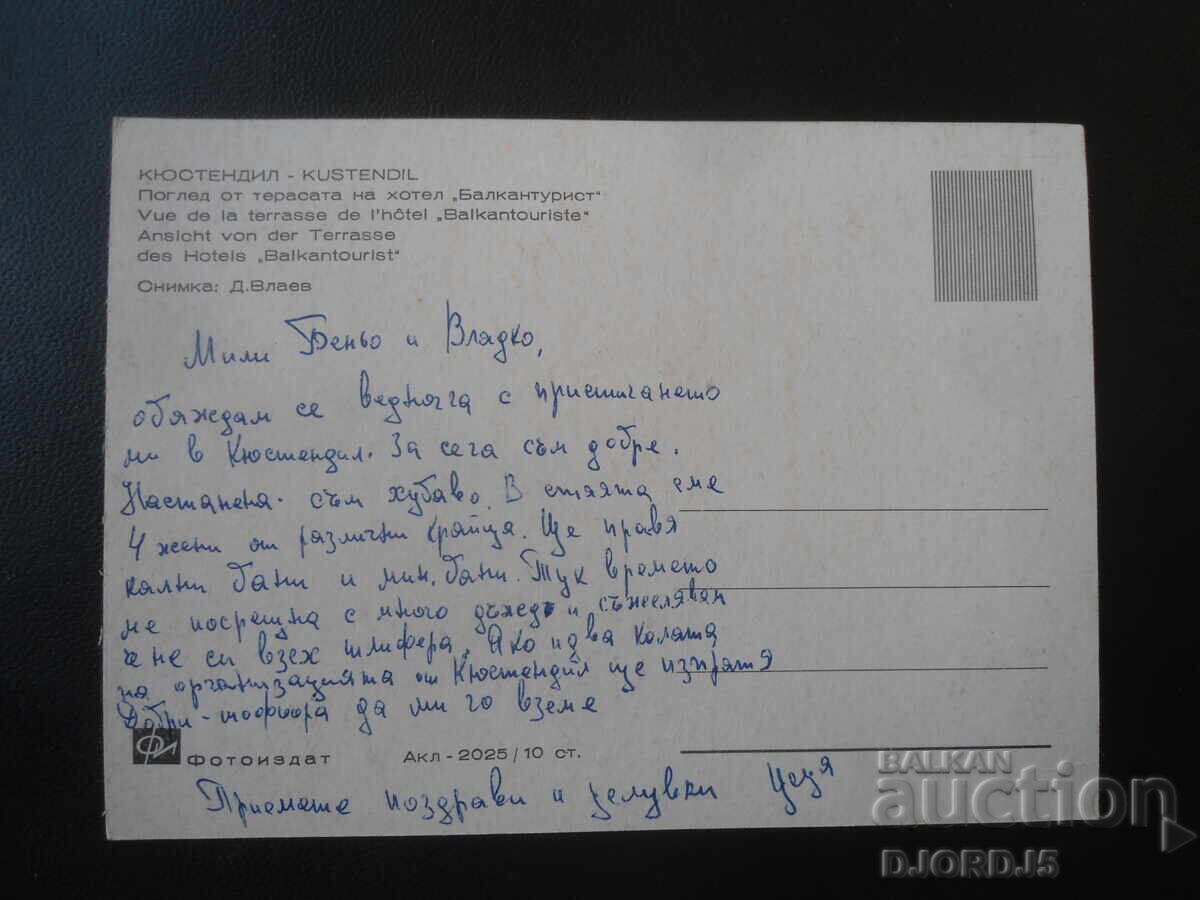 КЮСТЕНДИЛ - KUSTENDIL
Поглед от терасата на хотел „Балкантурист"
Vue de la terrasse de l'hôtel „Balkantouriste"
Ansicht von der Terrasse
des Hotels „Balkantourist"
Снимка: Д.Влаев
Мили Беньо и Владко,
обяждам се веднъгга с пристигането
ми в Кюстендил. За сега съм добре.
Настанена съм хубаво. В стаята сме
4 жени от различни крайща. Ще правя
кални бани и мин. бани. Тук времето
ме посрещна с много дъжд и съжелявам
че не си взех шлифера. Ако идва колата
на организацията от Кюстендил ще изпратя
Добри - шофьора да ми го вземе
ФИ Фотоиздат Акл - 2025/10 ст.
Приемете поздрави и целувки Цеця
BALKAN
auction
DJORDJ5